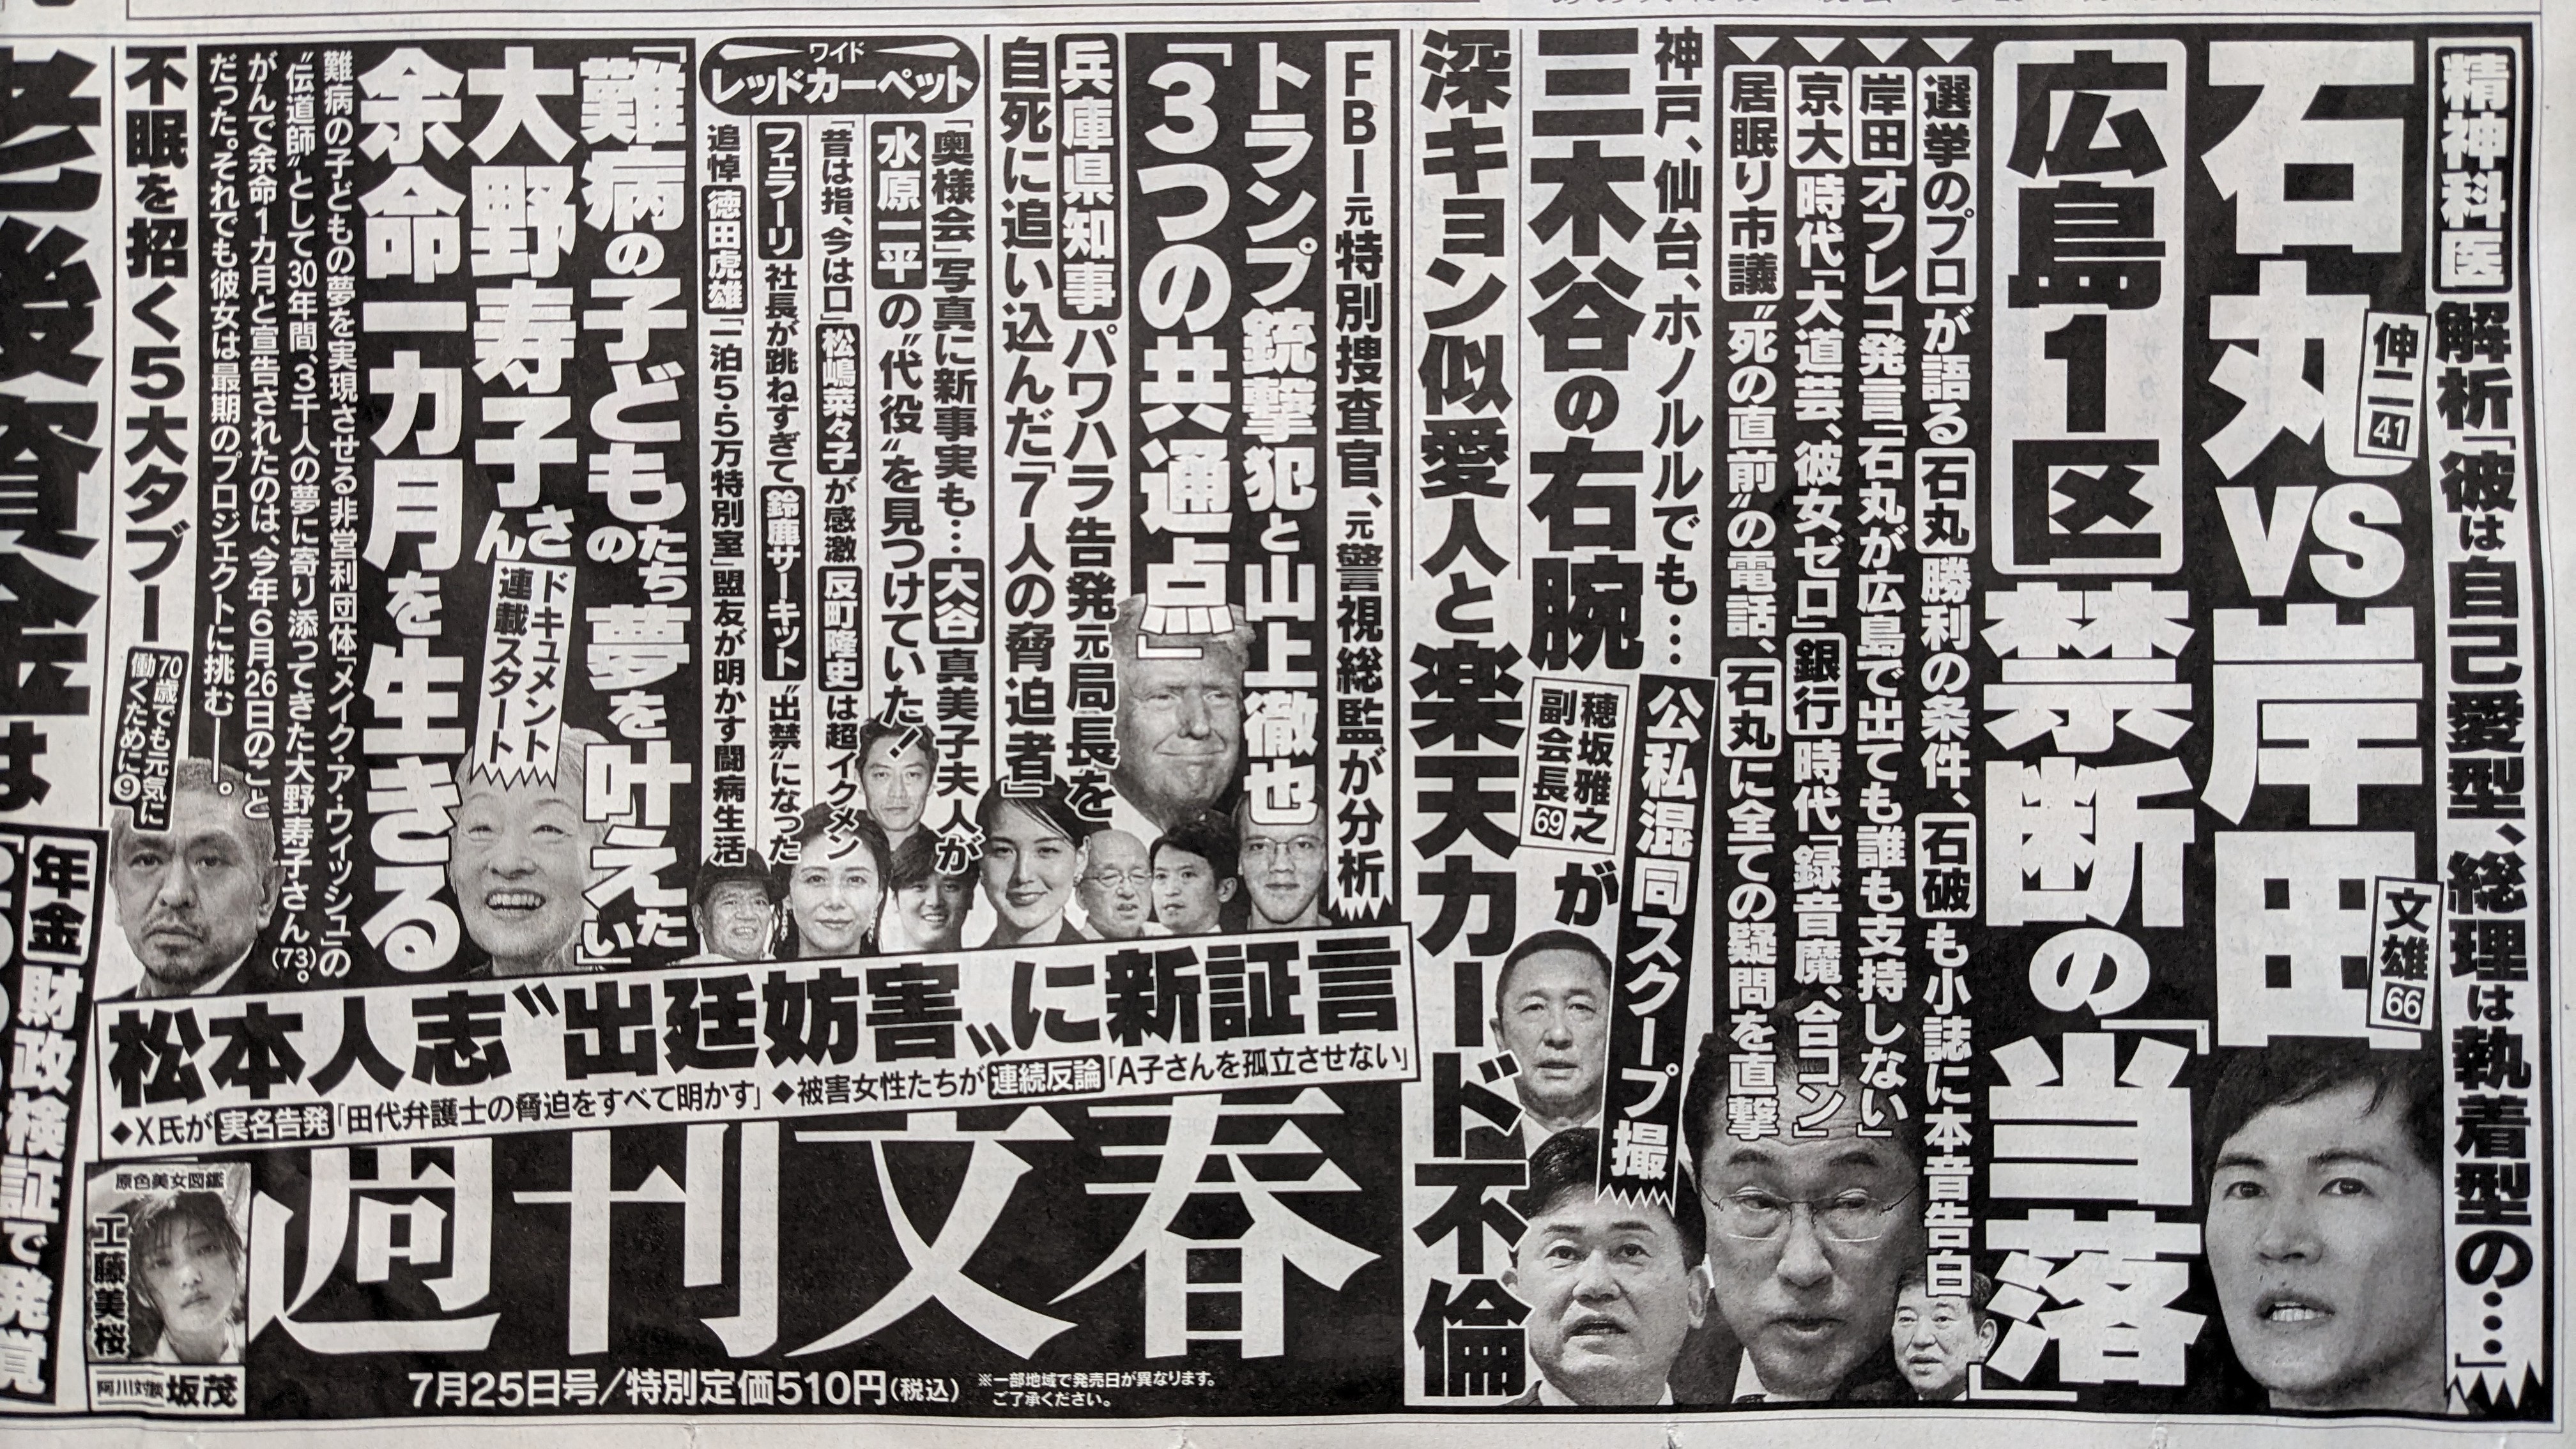 精神科医 解析「彼は自己愛型、総理は執着型の…」
石丸伸二41 vs 岸田文雄66
広島1区 禁断の「当落」
▼選挙のプロが語る石丸勝利の条件、石破も小誌に本音告白
▼岸田オフレコ発言「石丸が広島で出ても誰も支持しない」
▼京大時代「大道芸、彼女ゼロ」銀行時代「録音魔、合コン」
▼居眠り市議〝死の直前〟の電話、石丸に全ての疑問を直撃
神戸、仙台、ホノルルでも…
公私混同スクープ撮
三木谷の右腕
穂坂雅之
副会長69
が
深キョン似愛人と楽天カード不倫
FBI元特別捜査官、元警視総監が分析
トランプ銃撃犯と山上徹也
「3つの共通点」
兵庫県知事 パワハラ告発元局長を
自死に追い込んだ「7人の脅迫者」
ワイド
レッドカーペット
「奥様会」写真に新事実も… 大谷 真美子夫人が
水原一平の〝代役〟を見つけていた!
「昔は指、今は口」松嶋菜々子が感激 反町隆史は超イクメン
フェラーリ 社長が跳ねすぎて 鈴鹿サーキット〝出禁〟になった
追悼 徳田虎雄「一泊5・5万特別室」盟友が明かす闘病生活
「難病の子どもたちの夢を叶えたい」
大野寿子さん
ドキュメント
連載スタート
余命一カ月を生きる
難病の子どもの夢を実現させる非営利団体「メイク・ア・ウィッシュ」の
〝伝道師〟として30年間、3千人の夢に寄り添ってきた大野寿子さん(73)。
がんで余命1カ月と宣告されたのは、今年6月26日のこと
だった。それでも彼女は最期のプロジェクトに挑む――。
不眠を招く5大タブー
70歳でも元気に
働くために⑨
老後資金は
年金 財政検証で発覚
松本人志〝出廷妨害〟に新証言
◆X氏が 実名告発「田代弁護士の脅迫をすべて明かす」 ◆被害女性たちが 連続反論「A子さんを孤立させない」
週刊文春
原色美女図鑑
工藤美桜
阿川対談 坂茂
7月25日号/特別定価510円(税込)
※一部地域で発売日が異なります。
ご了承ください。